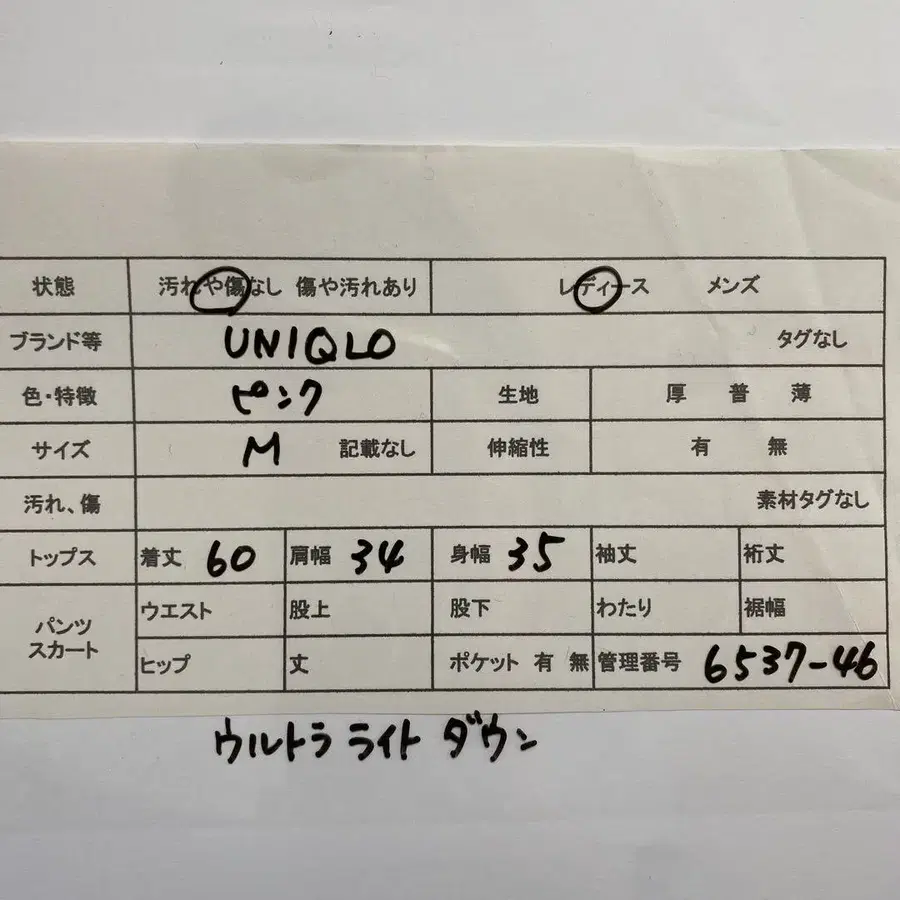 状態 汚れや傷なし 傷や汚れあり レディース メンズ
ブランド等 UNIQLO タグなし
色・特徴 ピンク 生地 厚 普 薄
サイズ M 記載なし 伸縮性 有 無
汚れ、傷 素材タグなし
トップス 着丈 60 肩幅 34 身幅 35 袖丈 裄丈
パンツ スカート ウエスト 股上 股下 わたり 裾幅
ヒップ 丈 ポケット 有 無 管理番号 6537-46
ウルトラ ライト ダウン